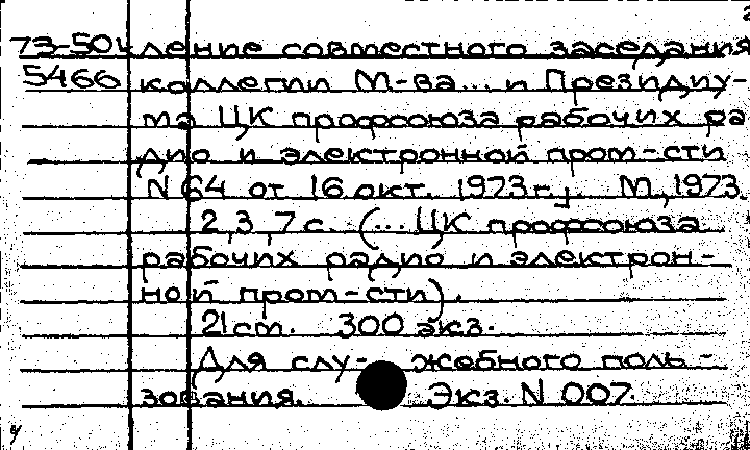 2
73-504 ление совместного заседания
5466 коллегии М-ва... и Президиу-
ма ЦК профсоюза рабочих ра
дио и электронной пром-сти
N 64 от 16 окт. 1973 г.]. М., 1973.
2, 3, 7 с. (... ЦК профсоюза
рабочих радио и электрон-
ной пром-сти).
21 см. 300 экз.
Для слу- жебного поль-
зования. Экз. N 007.